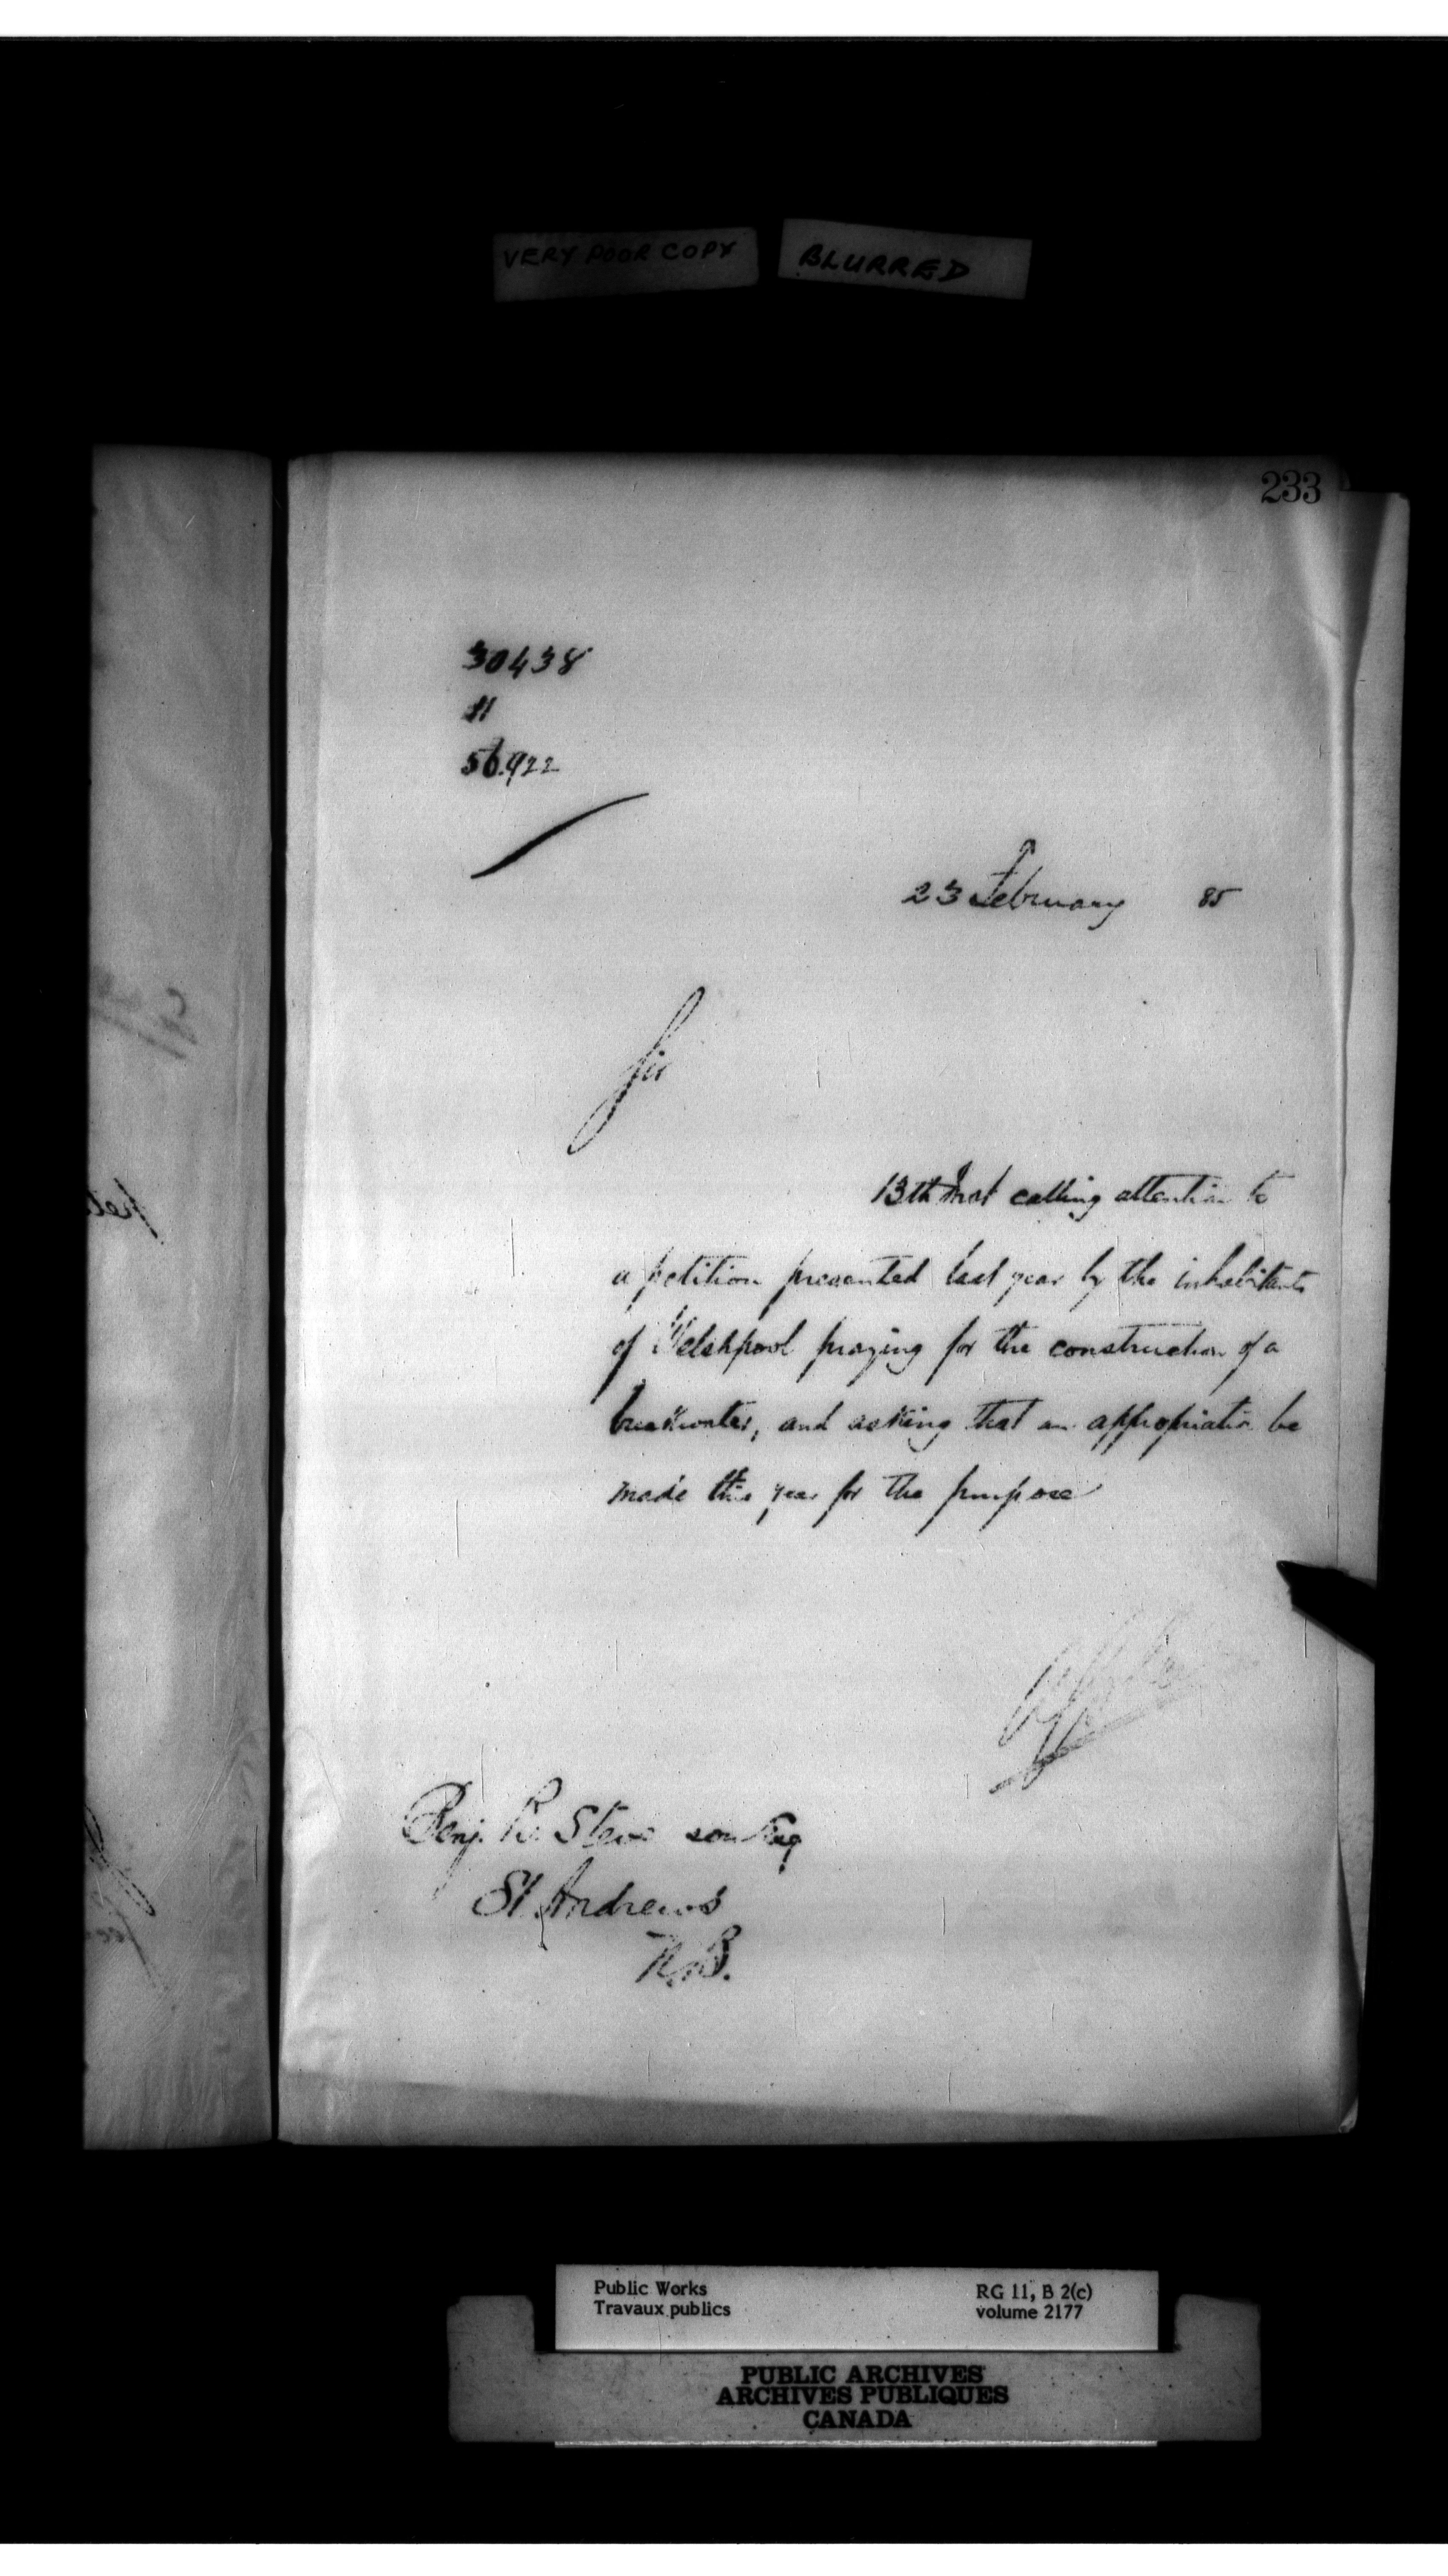 VERY POOR COPY BLURRED
233
30438
11
56.922
23 February 85
Sir
13th Inst calling attention to
a petition presented last year by the inhabitants
of Welshpool praying for the construction of a
breakwater, and asking that an appropriation be
made this year for the purpose
Benj. R. Steve son Esq
St. Andrews
N.B.
Public Works
Travaux publics
RG 11, B 2(c)
volume 2177
PUBLIC ARCHIVES
ARCHIVES PUBLIQUES
CANADA